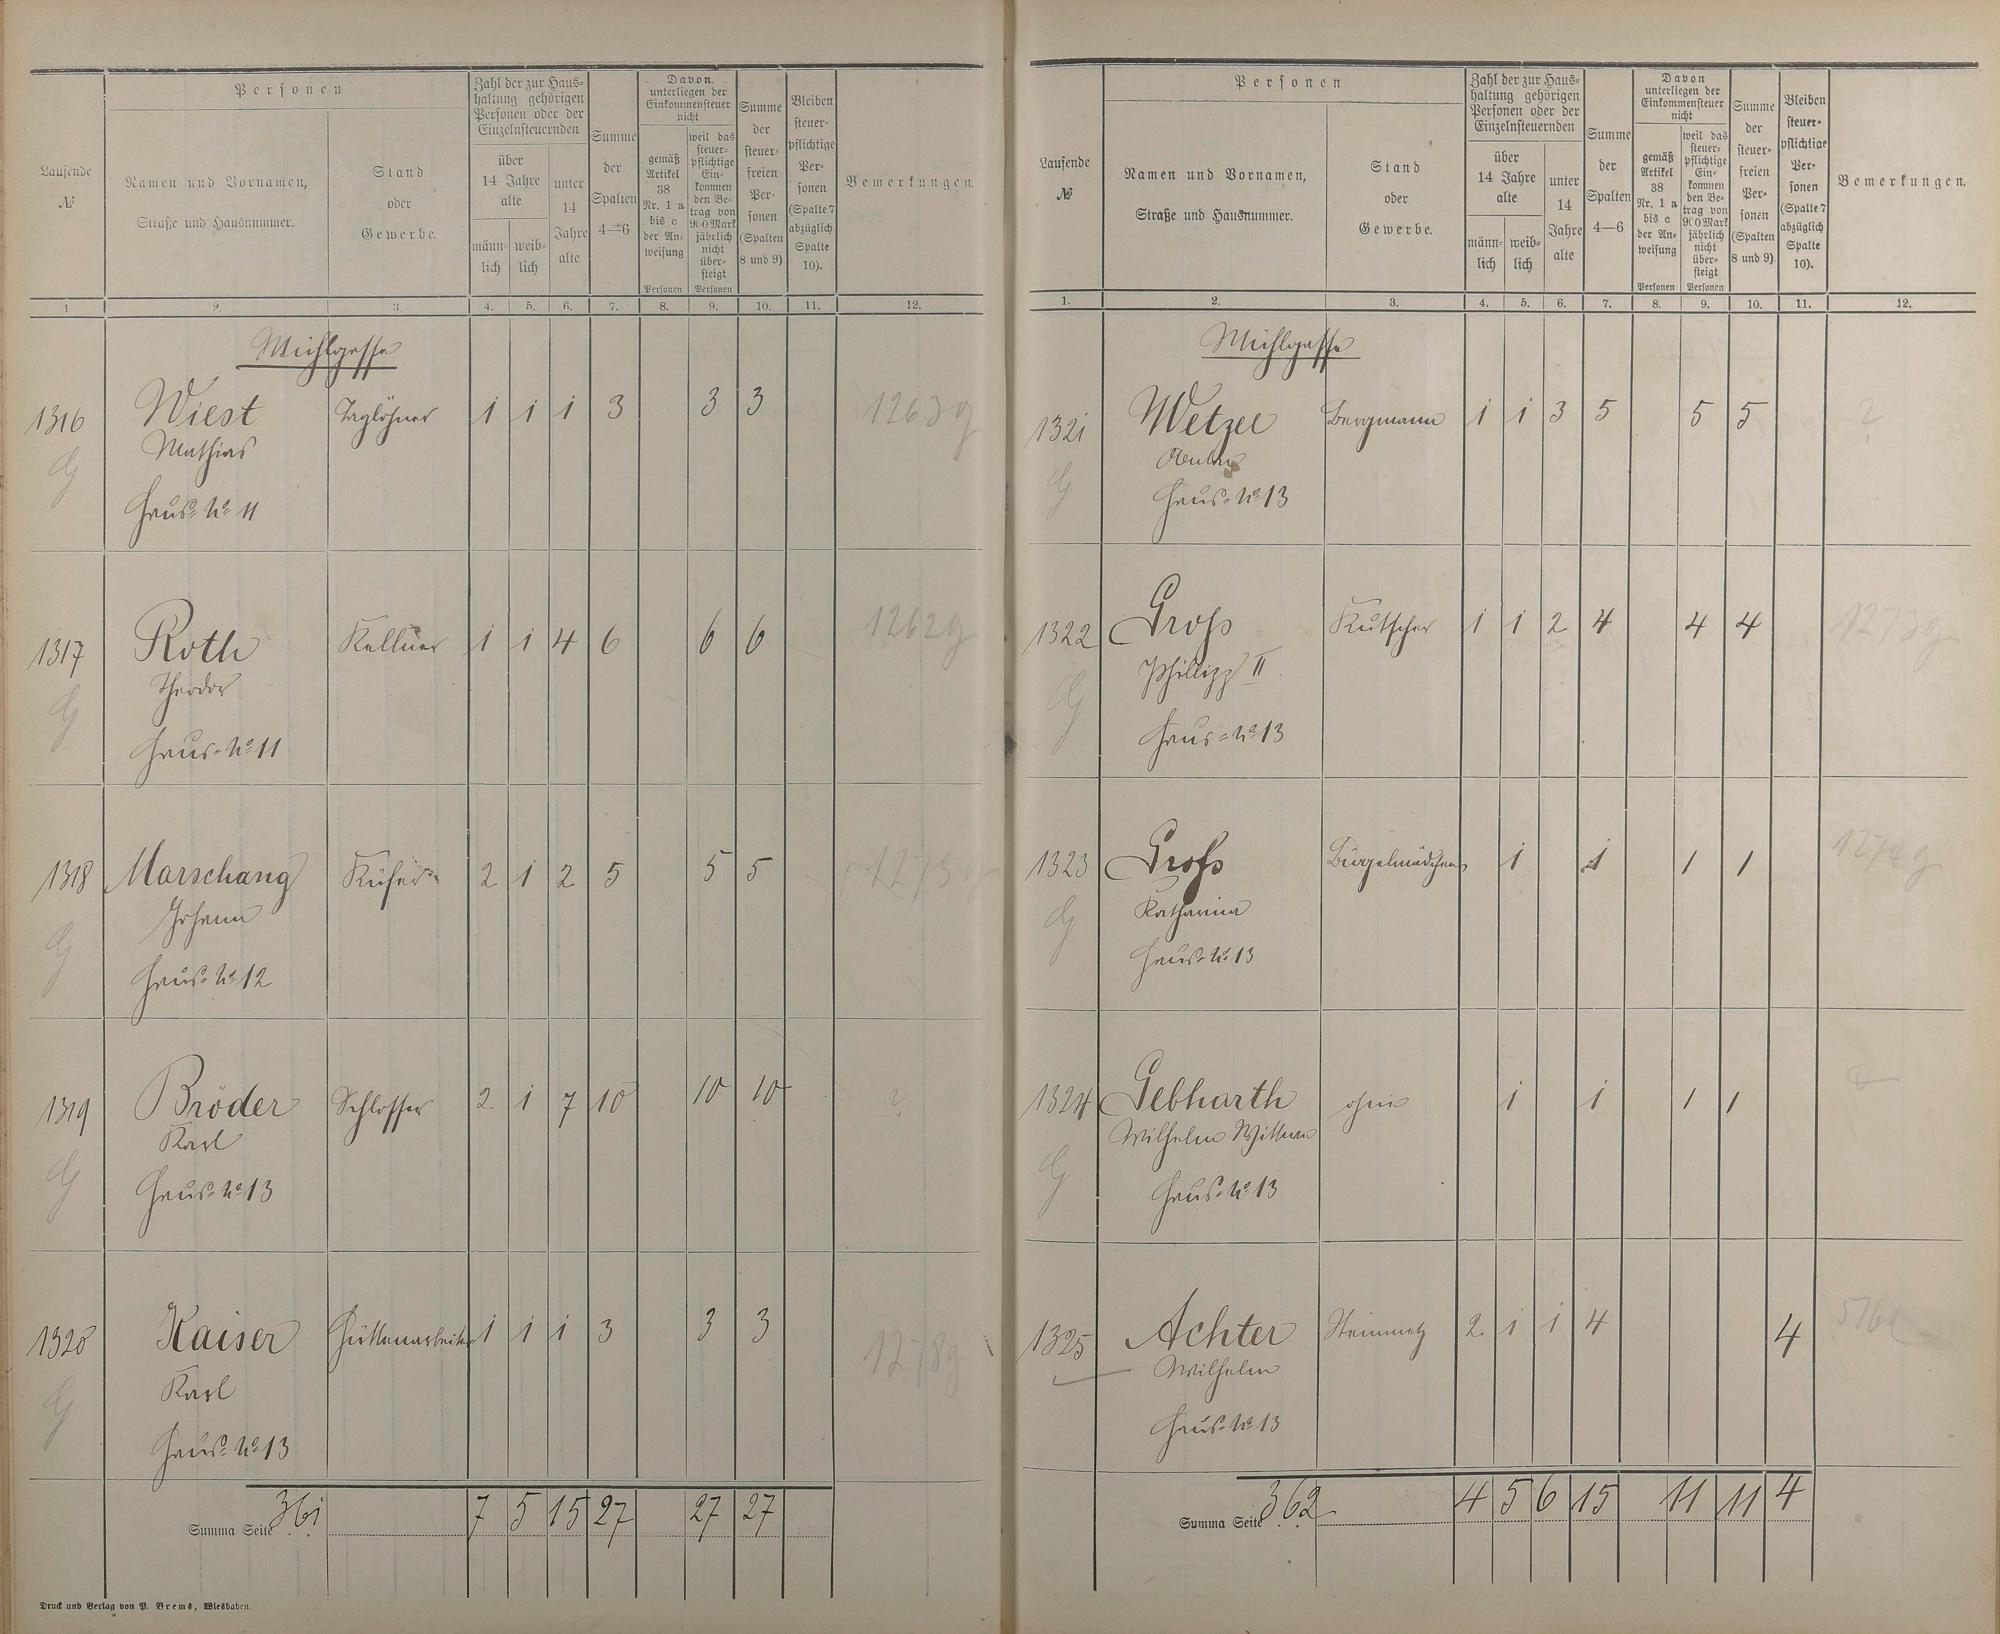 Personen
Laufende
№
Namen und Vornamen,
Straße und Hausnummer.
Stand
oder
Gewerbe.
Zahl der zur Haus=
haltung gehörigen
Personen oder der
Einzelnsteuernden
über
14 Jahre
alte
männ=
lich
weib=
lich
unter
14
Jahre
alte
Summe
der
Spalten
4—6
Davon
unterliegen der
Einkommensteuer
nicht
gemäß
Artikel
38
Nr. 1 a
bis c
der An=
weisung
Personen
weil das
steuer=
pflichtige
Ein=
kommen
den Be=
trag von
900 Mark
jährlich
nicht
über=
steigt
Personen
Summe
der
steuer=
freien
Per=
sonen
(Spalten
8 und 9)
Bleiben
steuer=
pflichtige
Per=
sonen
(Spalte 7
abzüglich
Spalte
10).
Bemerkungen.
1 2. 3. 4. 5. 6. 7. 8. 9. 10. 11. 12.
Mühlgasse
1316 Wiest Taglöhner 1 1 1 3 3 3 1263 g
Mathias
Haus=No 11
1317 Roth Kellner 1 1 4 6 6 6 1262 g
Theodor
Haus=No 11
1318 Marschang Küfer 2 1 2 5 5 5 1275 g
Johann
Haus=No 12
1319 Bröder Schlosser 2 1 7 10 10 10 ?
Karl
Haus=No 13
1320 Kaiser Hüttenarbeiter 1 1 1 3 3 3 1278 g
Karl
Haus=No 13
Summa Seite 361 7 5 15 27 27 27
Druck und Verlag von P. Brems, Wiesbaden.
Personen
Laufende
№
Namen und Vornamen,
Straße und Hausnummer.
Stand
oder
Gewerbe.
Zahl der zur Haus=
haltung gehörigen
Personen oder der
Einzelnsteuernden
über
14 Jahre
alte
männ=
lich
weib=
lich
unter
14
Jahre
alte
Summe
der
Spalten
4—6
Davon
unterliegen der
Einkommensteuer
nicht
gemäß
Artikel
38
Nr. 1 a
bis c
der An=
weisung
Personen
weil das
steuer=
pflichtige
Ein=
kommen
den Be=
trag von
900 Mark
jährlich
nicht
über=
steigt
Personen
Summe
der
steuer=
freien
Per=
sonen
(Spalten
8 und 9)
Bleiben
steuer=
pflichtige
Per=
sonen
(Spalte 7
abzüglich
Spalte
10).
Bemerkungen.
1. 2. 3. 4. 5. 6. 7. 8. 9. 10. 11. 12.
Mühlgasse
1321 Wetzel Bergmann 1 1 3 5 5 5 ?
Haus=No 13
1322 Groß Kutscher 1 1 2 4 4 4 1273 g
Phillipp II
Haus=No 13
1323 Groß Bügelmädchen 1 1 1 1
Katharina
Haus=No 13
1324 Gebharth ohne 1 1 1 1
Wilhelm Wittwe
Haus=No 13
1325 Achter Steinmetz 2 1 1 4 4
Wilhelm
Haus=No 13
Summa Seite 362 4 5 6 15 11 11 4